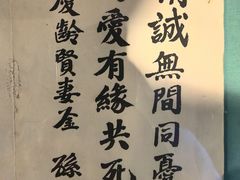 誠無間同憂
愛有緣共死
慶齡賢妻 孫